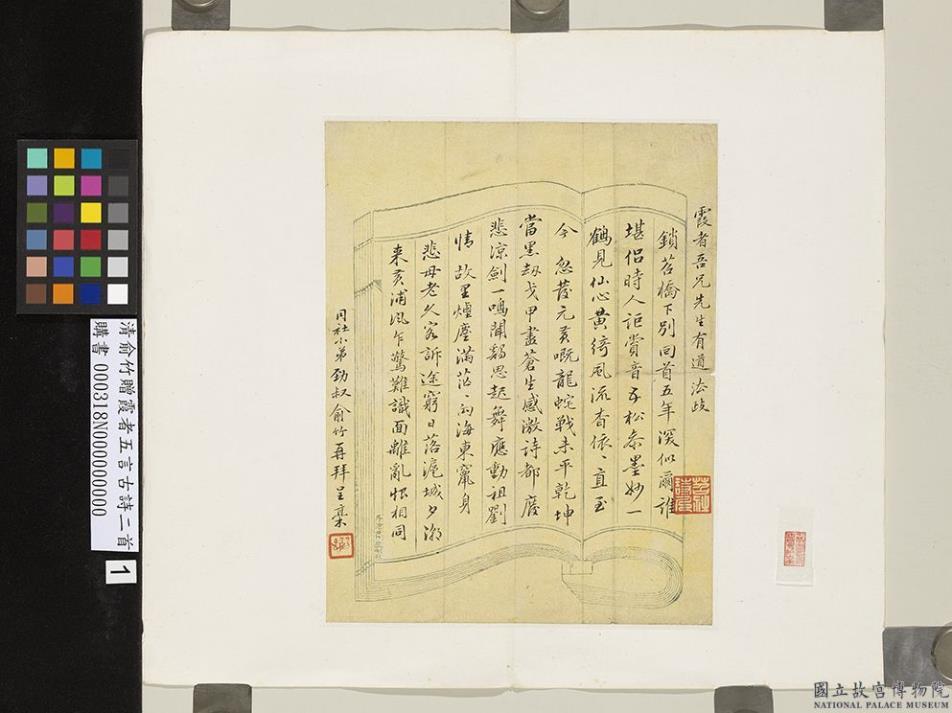 霞者吾兄先生有道法政
鎖苕橋下別回首五年深似爾誰
堪侶時人詎賞音五松泰墨妙一
鶴見仙心黃綺風流杳依〻直至
今 忽發元黃嘅龍蛇戰未平乾坤
當黑劫戈甲盡蒼生感激詩都廢
悲涼劍一鳴聞鷄思起舞應動祖劉
情 故里煙塵滿茫〻向海東竄身
悲母老久客訴途窮日落滬城夕潮
来黃浦風乍驚難識面離亂恨相同
同社小弟勁叔俞竹再拜呈稾
清俞竹贈霞者五言古詩二首
購書 000318N000000000
1
國立故宮博物院
NATIONAL PALACE MUSEUM